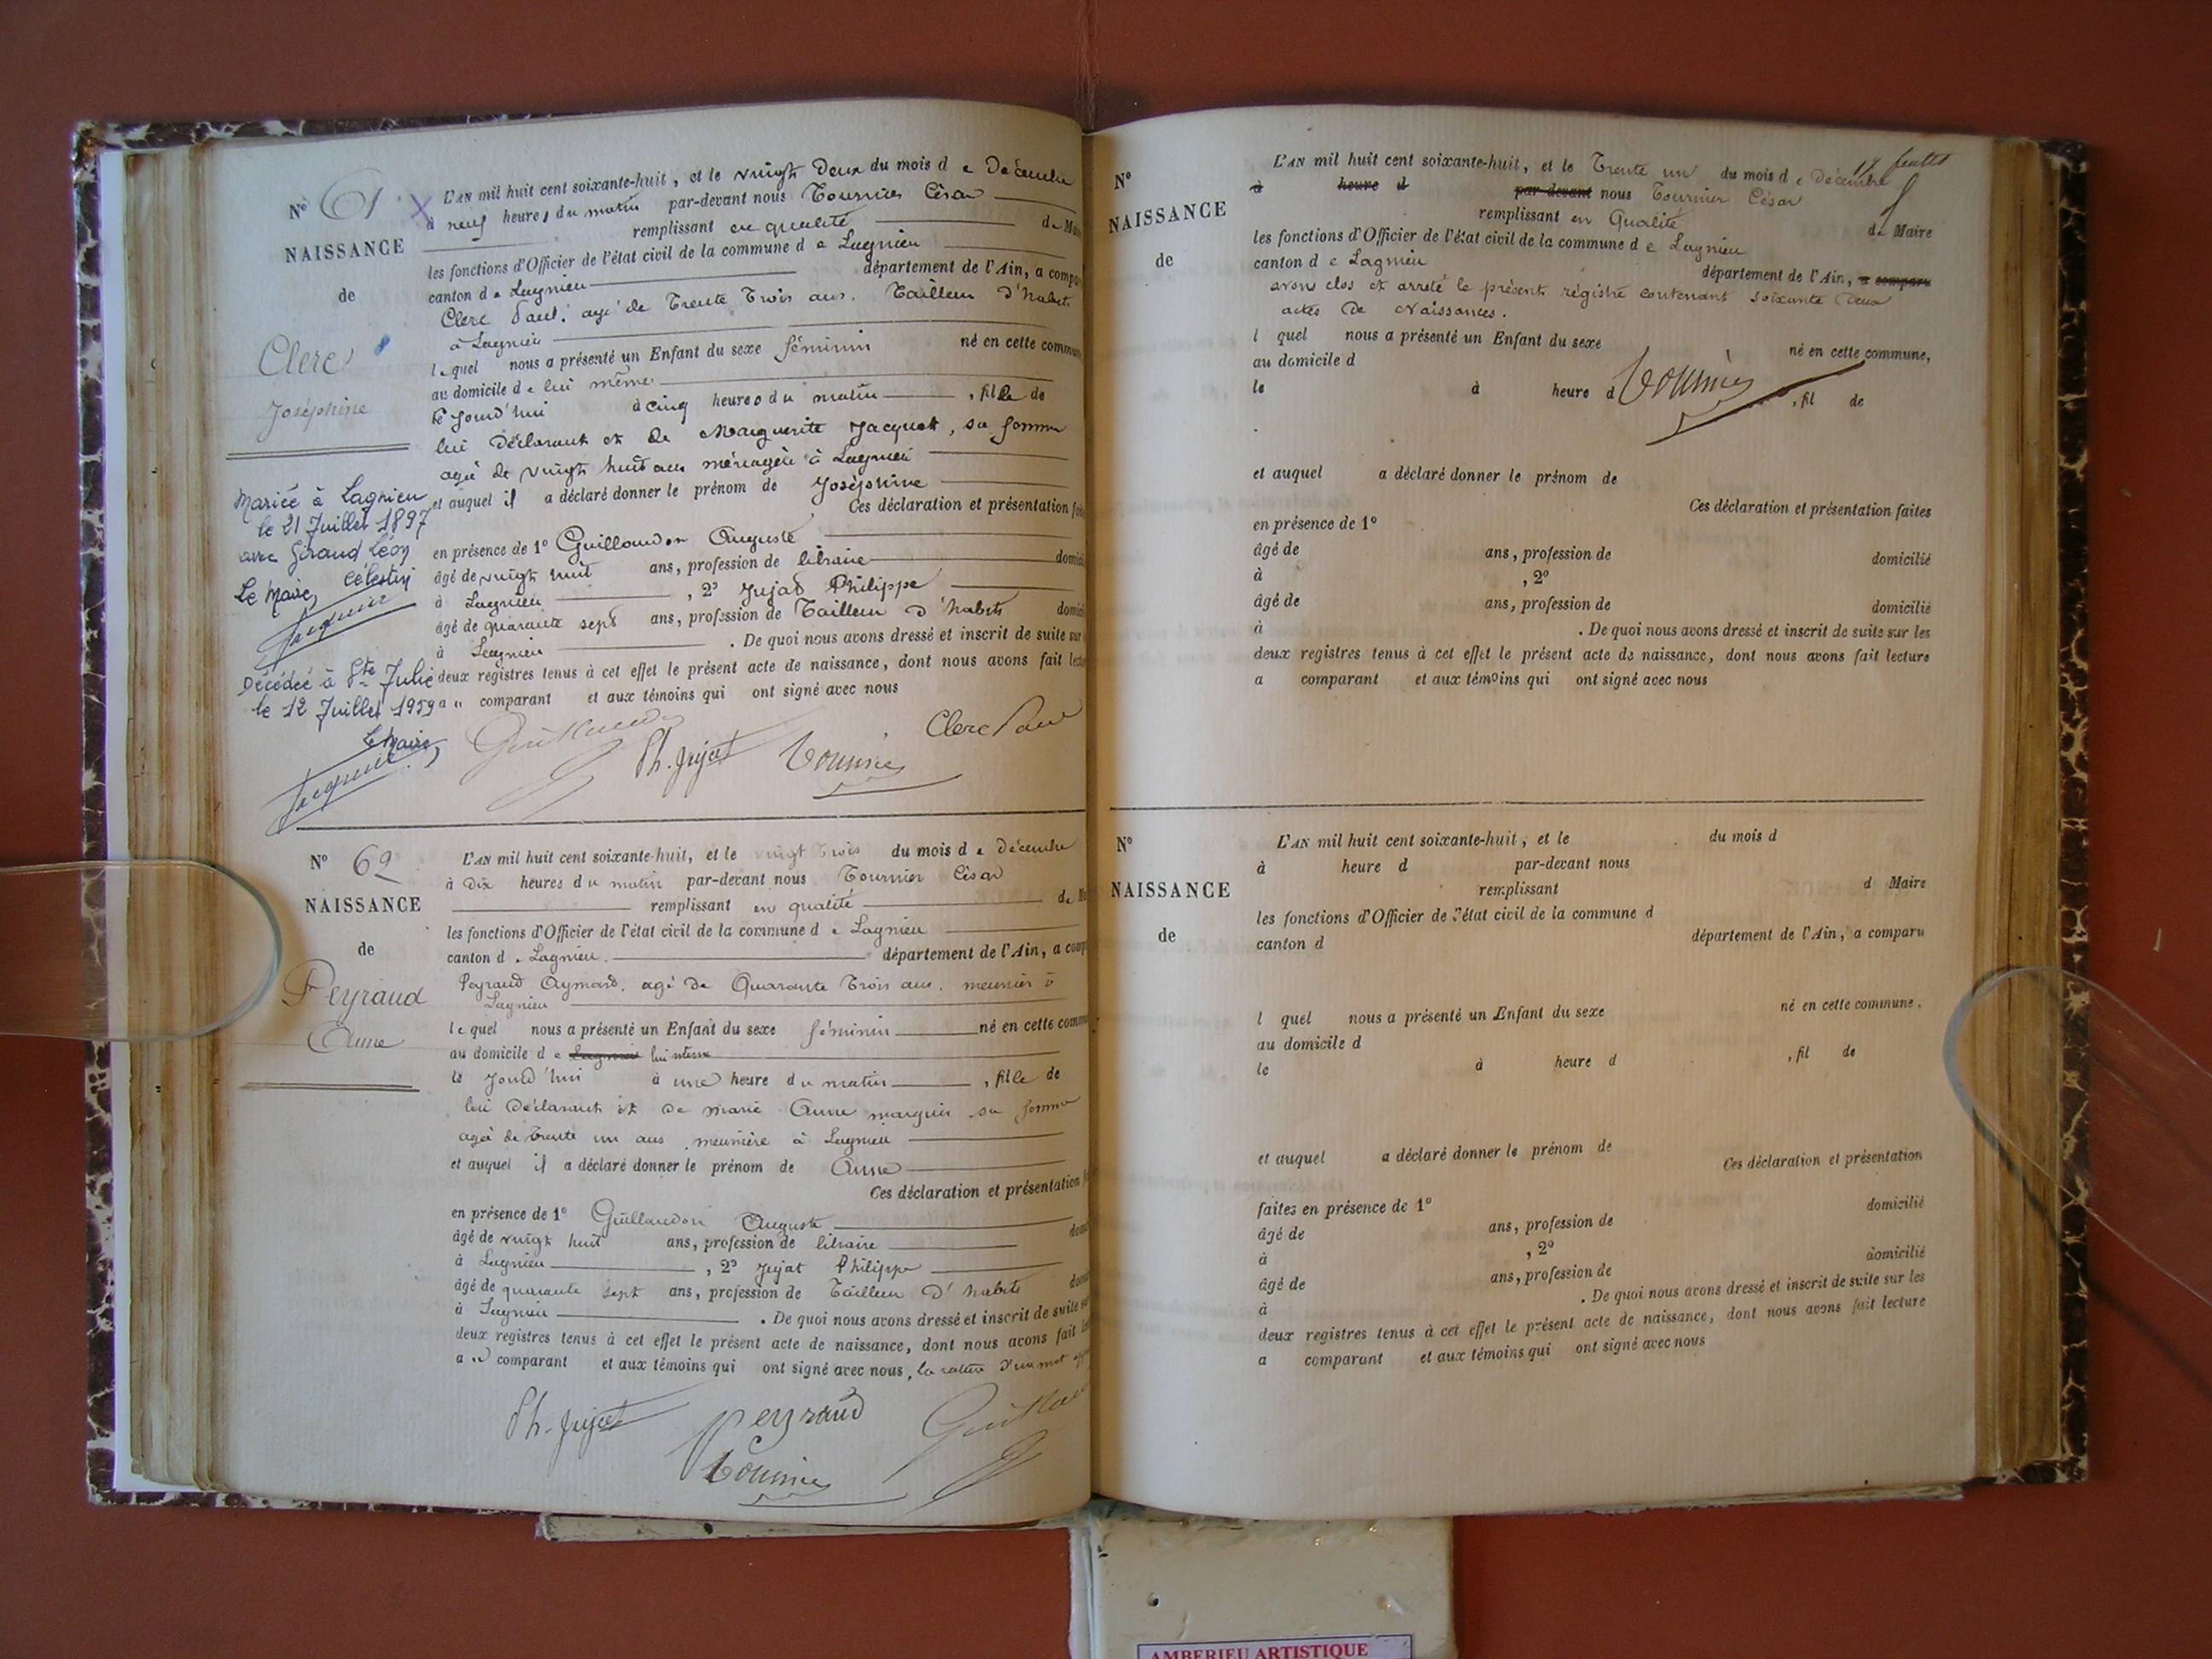 N° 61
NAISSANCE
de
Clerc
Joséphine
Mariée à Lagnieu
le 21 Juillet 1897
avec Giraud Léon
Célestin
Le Maire,
Décédée à Ste Julie
le 12 Juillet 1959
Le Maire,
L'AN mil huit cent soixante-huit, et le vingt deux du mois de Décembre
à neuf heures du matin par-devant nous Tournier César
remplissant en qualité de
les fonctions d'Officier de l'état civil de la commune de Lagnieu
canton de Lagnieu département de l'Ain, a
Clerc Paul, agé de Trente Trois ans, Tailleur d'habits
à Lagnieu
lequel nous a présenté un Enfant du sexe féminin né en cette
au domicile de lui même
le jourd'hui à cinq heures du matin, fille de
lui Déclarant et de Marguerite Jacquet, sa femme
agé de vingt huit ans ménagère à Lagnieu
et auquel il a déclaré donner le prénom de Joséphine
Ces déclaration et présentation
en présence de 1° Guillaudon Auguste
âgé de vingt huit ans, profession de libraire
à Lagnieu, 2° Jujat Philippe
âgé de quarante sept ans, profession de Tailleur d'habits
à Lagnieu. De quoi nous avons dressé et inscrit de suite sur
deux registres tenus à cet effet le présent acte de naissance, dont nous avons fait
au comparant et aux témoins qui ont signé avec nous
Clerc Paul
Ph. Jujat Tournier
N° 62
NAISSANCE
de
Peyraud
Anne
L'AN mil huit cent soixante-huit, et le vingt Trois du mois de Décembre
à Dix heures du matin par-devant nous Tournier César
remplissant en qualité de
les fonctions d'Officier de l'état civil de la commune de Lagnieu
canton de Lagnieu. département de l'Ain, a
Peyraud Aymard, agé de Quarante Trois ans, meunier à
Lagnieu
lequel nous a présenté un Enfant du sexe féminin né en cette
au domicile de Lagnieu lui même
le jourd'hui à une heure du matin, fille de
lui Déclarant et de marie Anne marquis sa femme
agée de Trente un ans, meunière à Lagnieu
et auquel il a déclaré donner le prénom de Anne
Ces déclaration et présentation
en présence de 1° Guillaudon Auguste
âgé de vingt huit ans, profession de libraire
à Lagnieu, 2° Jujat Philippe
âgé de quarante sept ans, profession de Tailleur d'habits
à Lagnieu. De quoi nous avons dressé et inscrit de suite
deux registres tenus à cet effet le présent acte de naissance, dont nous avons fait
au comparant et aux témoins qui ont signé avec nous, la rature d'un mot
Ph. Jujat Peyraud
Tournier
N°
NAISSANCE
de
17 feuillet
L'AN mil huit cent soixante-huit, et le Trente un du mois de Décembre
à heure d par-devant nous Tournier César
remplissant en Qualité de Maire
les fonctions d'Officier de l'état civil de la commune de Lagnieu
canton de Lagnieu département de l'Ain, a comparu
avons clos et arreté le présent régistre contenant soixante Deux
actes de Naissances.
l quel nous a présenté un Enfant du sexe né en cette commune,
au domicile d
le à heure d , fil de
Tournier
et auquel a déclaré donner le prénom de
Ces déclaration et présentation faites
en présence de 1°
âgé de ans, profession de domicilié
à , 2°
âgé de ans, profession de domicilié
à . De quoi nous avons dressé et inscrit de suite sur les
deux registres tenus à cet effet le présent acte de naissance, dont nous avons fait lecture
a comparant et aux témoins qui ont signé avec nous
N°
NAISSANCE
de
L'AN mil huit cent soixante-huit, et le du mois d
à heure d par-devant nous
remplissant d Maire
les fonctions d'Officier de l'état civil de la commune d
canton d département de l'Ain, a comparu
l quel nous a présenté un Enfant du sexe né en cette commune,
au domicile d
le à heure d , fil de
et auquel a déclaré donner le prénom de
Ces déclaration et présentation
faites en présence de 1° domicilié
âgé de ans, profession de
à , 2° domicilié
âgé de ans, profession de
à . De quoi nous avons dressé et inscrit de suite sur les
deux registres tenus à cet effet le présent acte de naissance, dont nous avons fait lecture
a comparant et aux témoins qui ont signé avec nous
AMBERIEU ARTISTIQUE